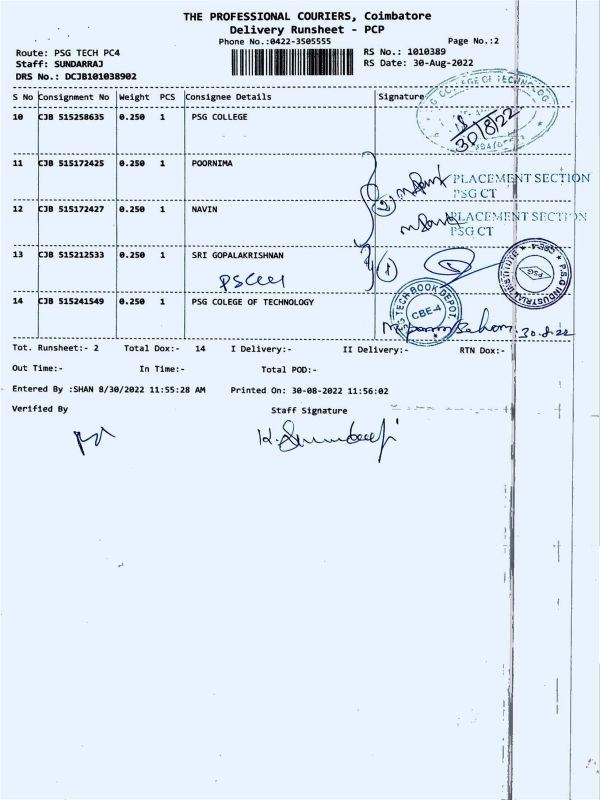 THE PROFESSIONAL COURIERS, Coimbatore
Delivery Runsheet - PCP
Phone No.:0422-3505555 Page No.:2
Route: PSG TECH PC4 RS No.: 1010389
Staff: SUNDARRAJ RS Date: 30-Aug-2022
DRS No.: DCJB101038902
S No Consignment No Weight PCS Consignee Details Signature
10 CJB 515258635 0.250 1 PSG COLLEGE
30/8/22
11 CJB 515172425 0.250 1 POORNIMA
PLACEMENT SECTION
PSG CT
12 CJB 515172427 0.250 1 NAVIN
PLACEMENT SECTION
PSG CT
13 CJB 515212533 0.250 1 SRI GOPALAKRISHNAN
P.S.G INDUSTRIAL INSTITUTE
CBE-4
PSG
14 CJB 515241549 0.250 1 PSG COLEGE OF TECHNOLOGY
PSG TECH BOOK DEPOT
CBE-4
30.8.22
Tot. Runsheet:- 2 Total Dox:- 14 I Delivery:- II Delivery:- RTN Dox:-
Out Time:- In Time:- Total POD:-
Entered By :SHAN 8/30/2022 11:55:28 AM Printed On: 30-08-2022 11:56:02
Verified By Staff Signature